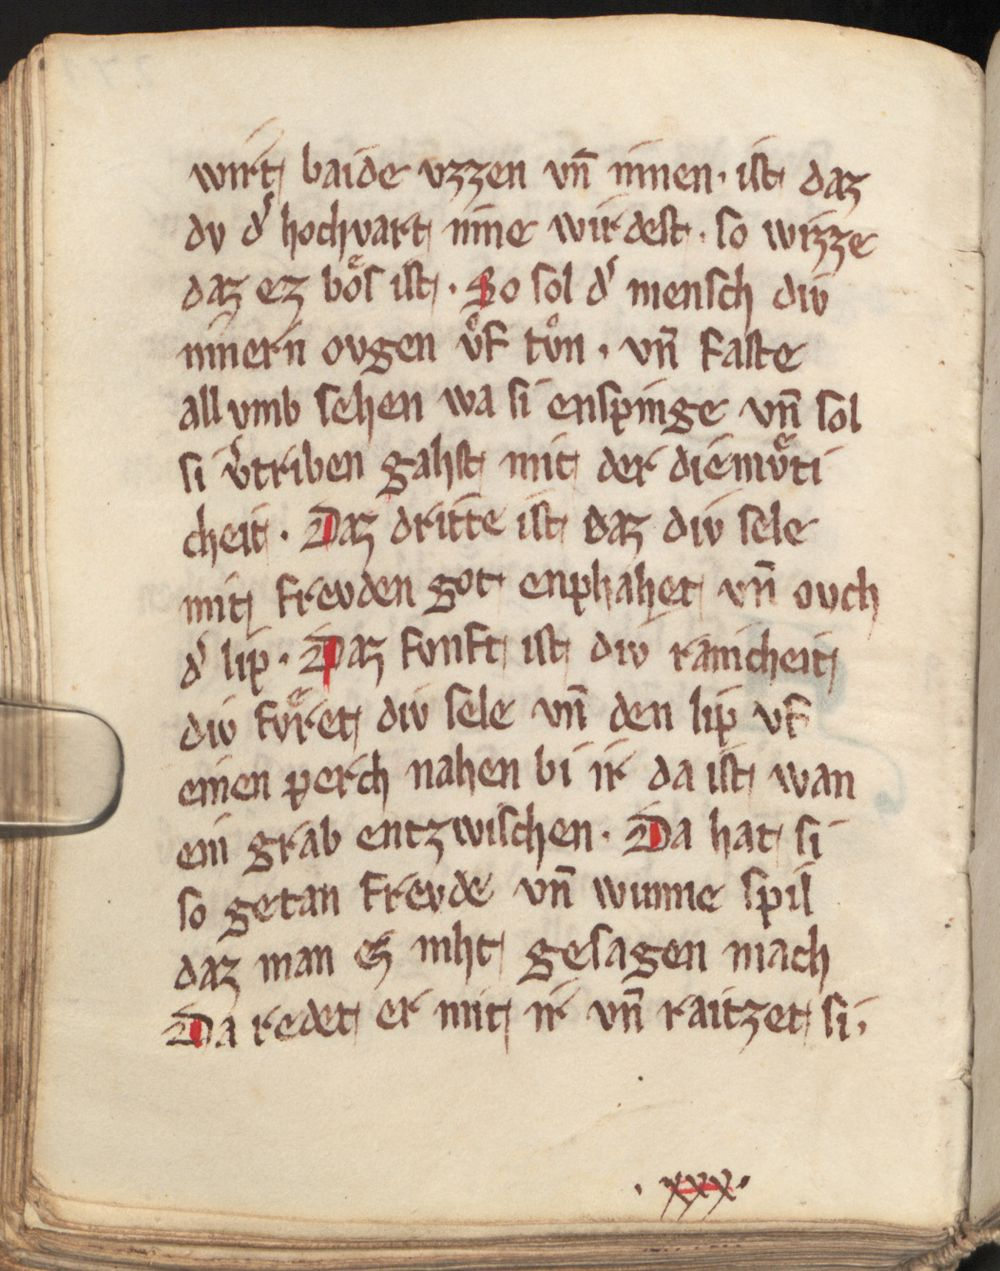 wirt baide vzzen vn̄ innen · ist daz
dv d͛ hochvart inne wirdest · so wizze
daz ez boͤs ist · So sol d͛ mensch div
innern ovgen vͦf tvͦn · vn̄ faste
all vmb sehen wa si enspringe vn̄ sol
si v͛triben gahst mit der diemvͤti
cheit · Daz dritte ist daz div sele
mit frevden got enphahet vn̄ ovch
d͛ lip · Daz funft ist div rainicheit
div fvͤret div sele vn̄ den lip vf
einen perch nahen bi ir da ist wan
ein grab entzwischen · Da hat si
so getan frevde vn̄ wunne spil
daz man es niht gesagen mach
Da redet er mit ir vn̄ raitzet si ·
· xxx ·